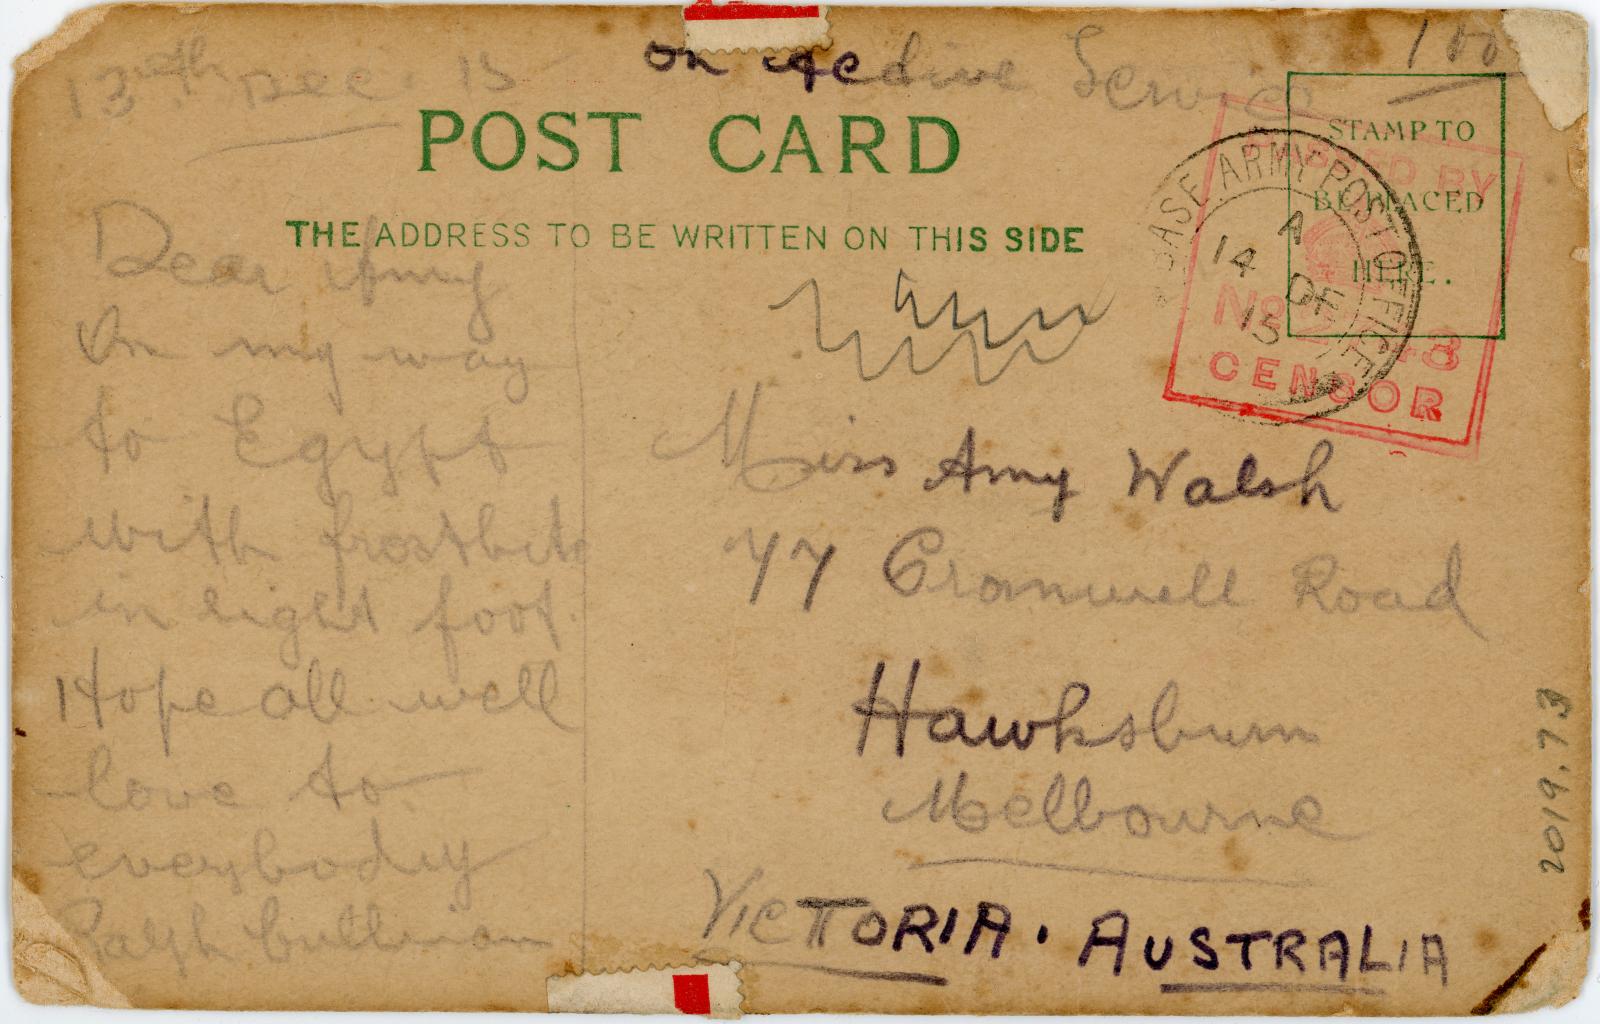 13th Dec. 15
On Active Service
100
POST CARD
THE ADDRESS TO BE WRITTEN ON THIS SIDE
STAMP TO
BE PLACED
HERE.
PASSED BY
No 3
CENSOR
BASE ARMY POST OFFICE
A
14 DE
15
Dear Amy
On my way
to Egypt
with frostbite
in right foot.
Hope all well
love to
everybody
Ralph Cullinan
Miss Amy Walsh
77 Cromwell Road
Hawksburn
Melbourne
VICTORIA. AUSTRALIA
2019.73